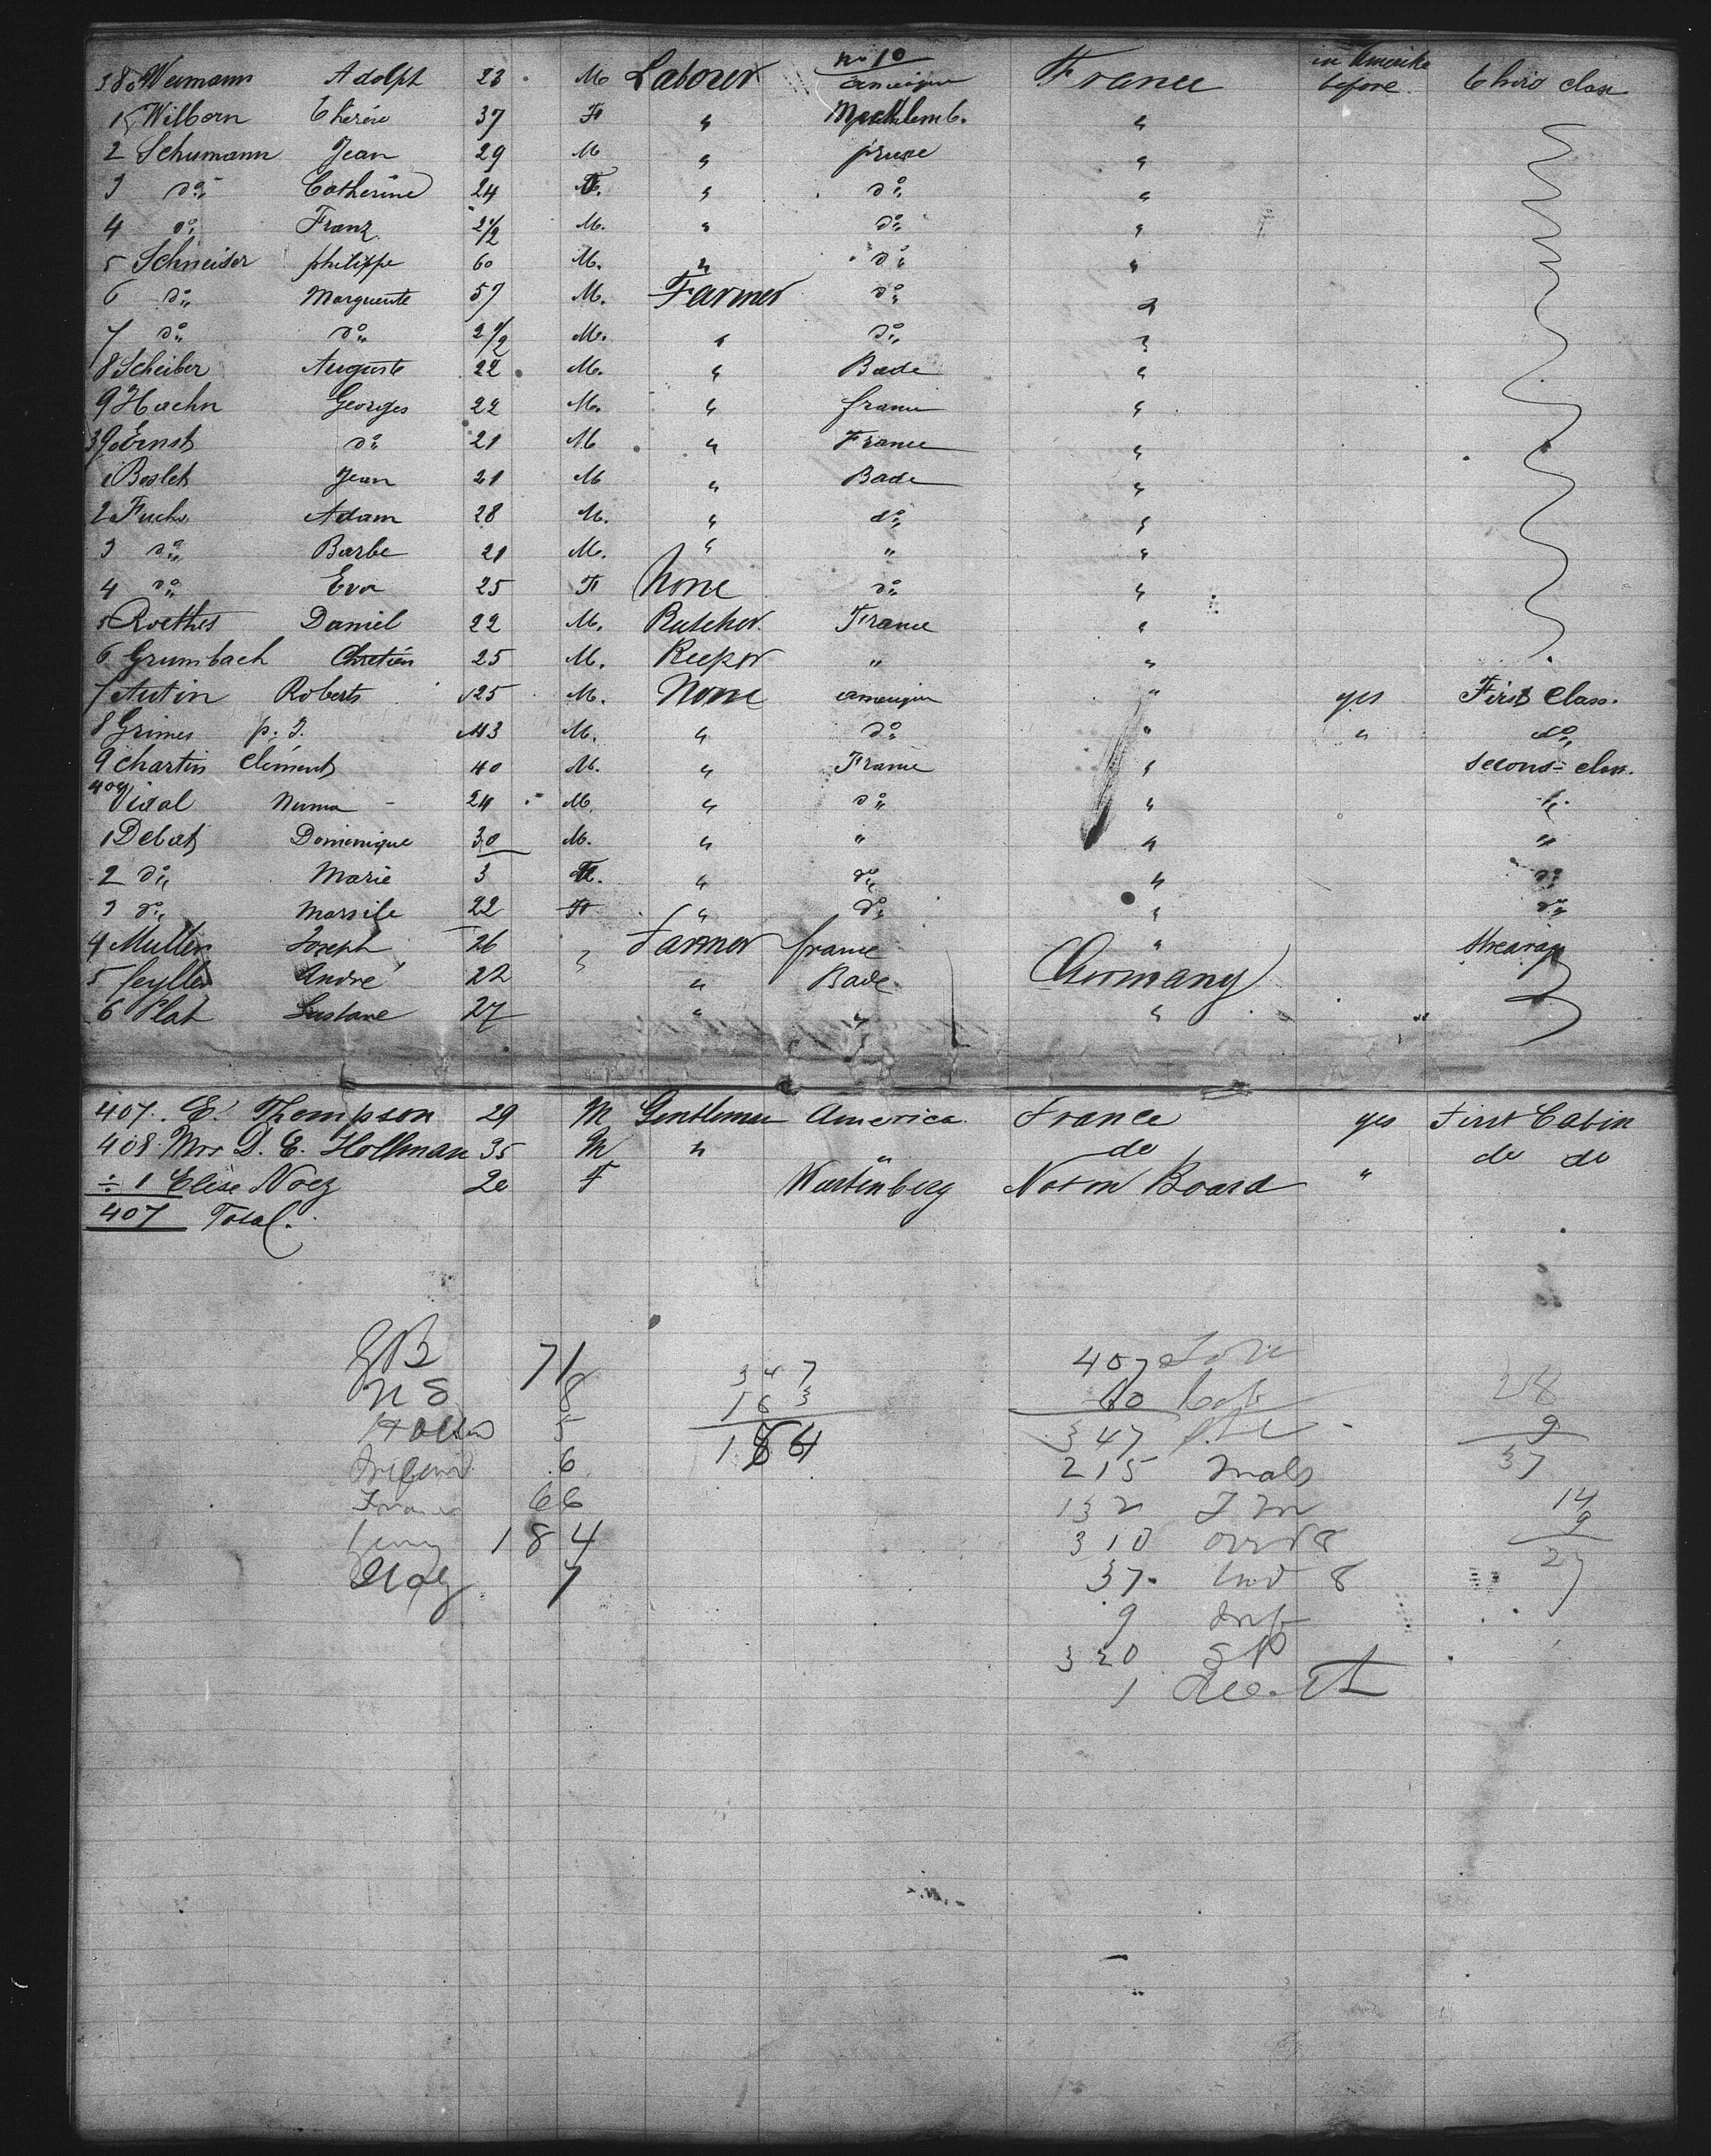 No 10
380 Weimann Adolph 23 M Laborer France in Amerika before third class
1 Wilborn Thérèse 37 F " Mecklemb. "
2 Schumann Jean 29 M " pruse "
3 do Catherine 24 F. " do "
4 do Franz 2 1/2 M. " do "
5 Schneider philippe 60 M. " do "
6 do Marguerite 57 M. Farmer do "
7 do do 2 1/2 M. " do "
8 Scheiber Auguste 22 M. " Bade "
9 Haehn Georges 22 M. " france "
390 Ernst do 21 M " France "
1 Boslet Jean 21 M " Bade "
2 Fuchs Adam 28 M. " do "
3 do Barbe 21 M. " " "
4 do Eva 25 F None do "
5 Roethes Daniel 22 M. Butcher. France "
6 Grumbach Chretien 25 M. Keeper " "
7 Autin Roberts 25 M. None " yes First Class.
8 Grimes p. J. 43 M. " do " " do
9 Chartin Clément 40 M. " France " second class.
400 Vidal Numa 24 M " do "
1 Debats Dominique 30 M. " " " "
2 do Marie 3 F. " do " do
3 do 22 F " do " do
4 Muller Joseph 26 " Farmer france "
5 André 22 " Bade Germany
6 Plat Gustave 27 " " "
407. E. Thompson 29 M Gentleman America. France yes First Cabin
408 Mr D. E. Hollman 35 M " " do do do
÷ 1 Elise Noez 20 F Wurtenberg Not on Board "
407 Total.
GB 71
8
5
6
France 66
Germ 184
Italy 7
347
163
184
407
60
347
215 Male
132
310 over 8
37 Und 8
9 Inf
320
1
28
9
37
14
9